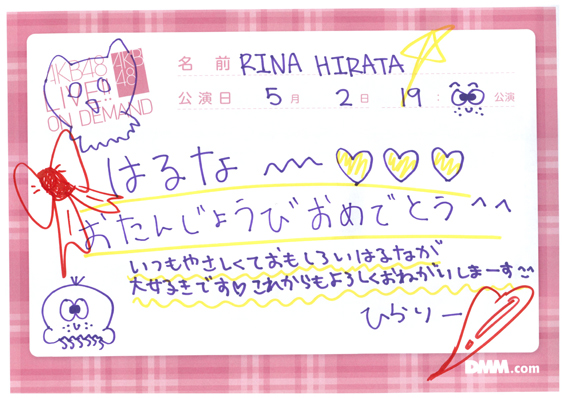 AKB48
LIVE
ON DEMAND
AKB
48
名前 RINA HIRATA
公演日 5月 2日 19: 公演
はるなぁ 〜 ♡♡♡
おたんじょうびおめでとう ^^
いつもやさしくておもしろいはるなが
大好きです♡これからもよろしくおねがいしまーす
ひらりー
DMM.com